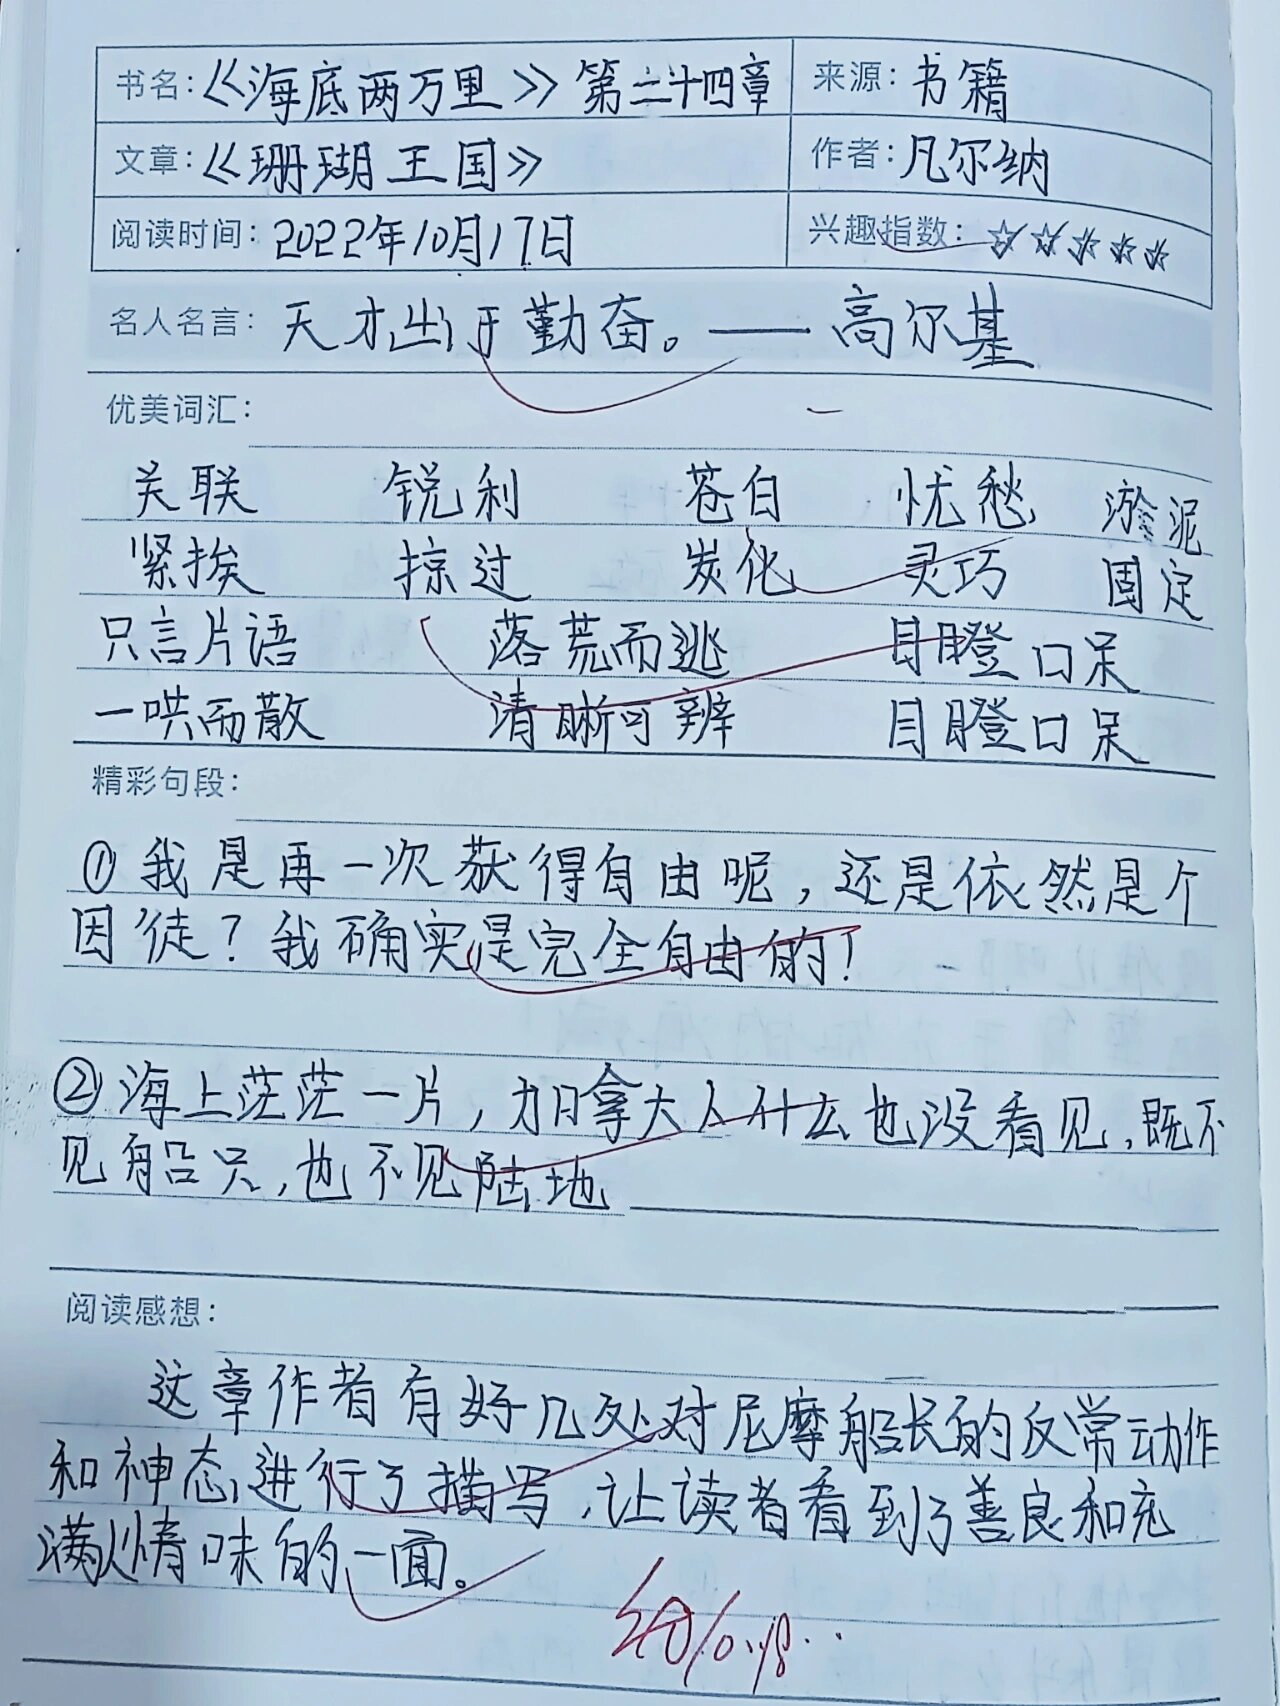 书名：《海底两万里》第二十四章 来源：书籍
文章：《珊瑚王国》 作者：凡尔纳
阅读时间：2022年10月17日 兴趣指数：☆☆☆☆☆
名人名言：天才出于勤奋。——高尔基
优美词汇：
关联 锐利 苍白 忧愁 淤泥
紧挨 掠过 炭化 灵巧 固定
只言片语 落荒而逃 目瞪口呆
一哄而散 清晰可辨 目瞪口呆
精彩句段：
①我是再一次获得自由呢，还是依然是个
囚徒？我确实是完全自由的！
②海上茫茫一片，加拿大人什么也没看见，既不
见船只，也不见陆地
阅读感想：
这章作者有好几处对尼摩船长的反常动作
和神态进行了描写，让读者看到了善良和充
满人情味的一面。
10.18